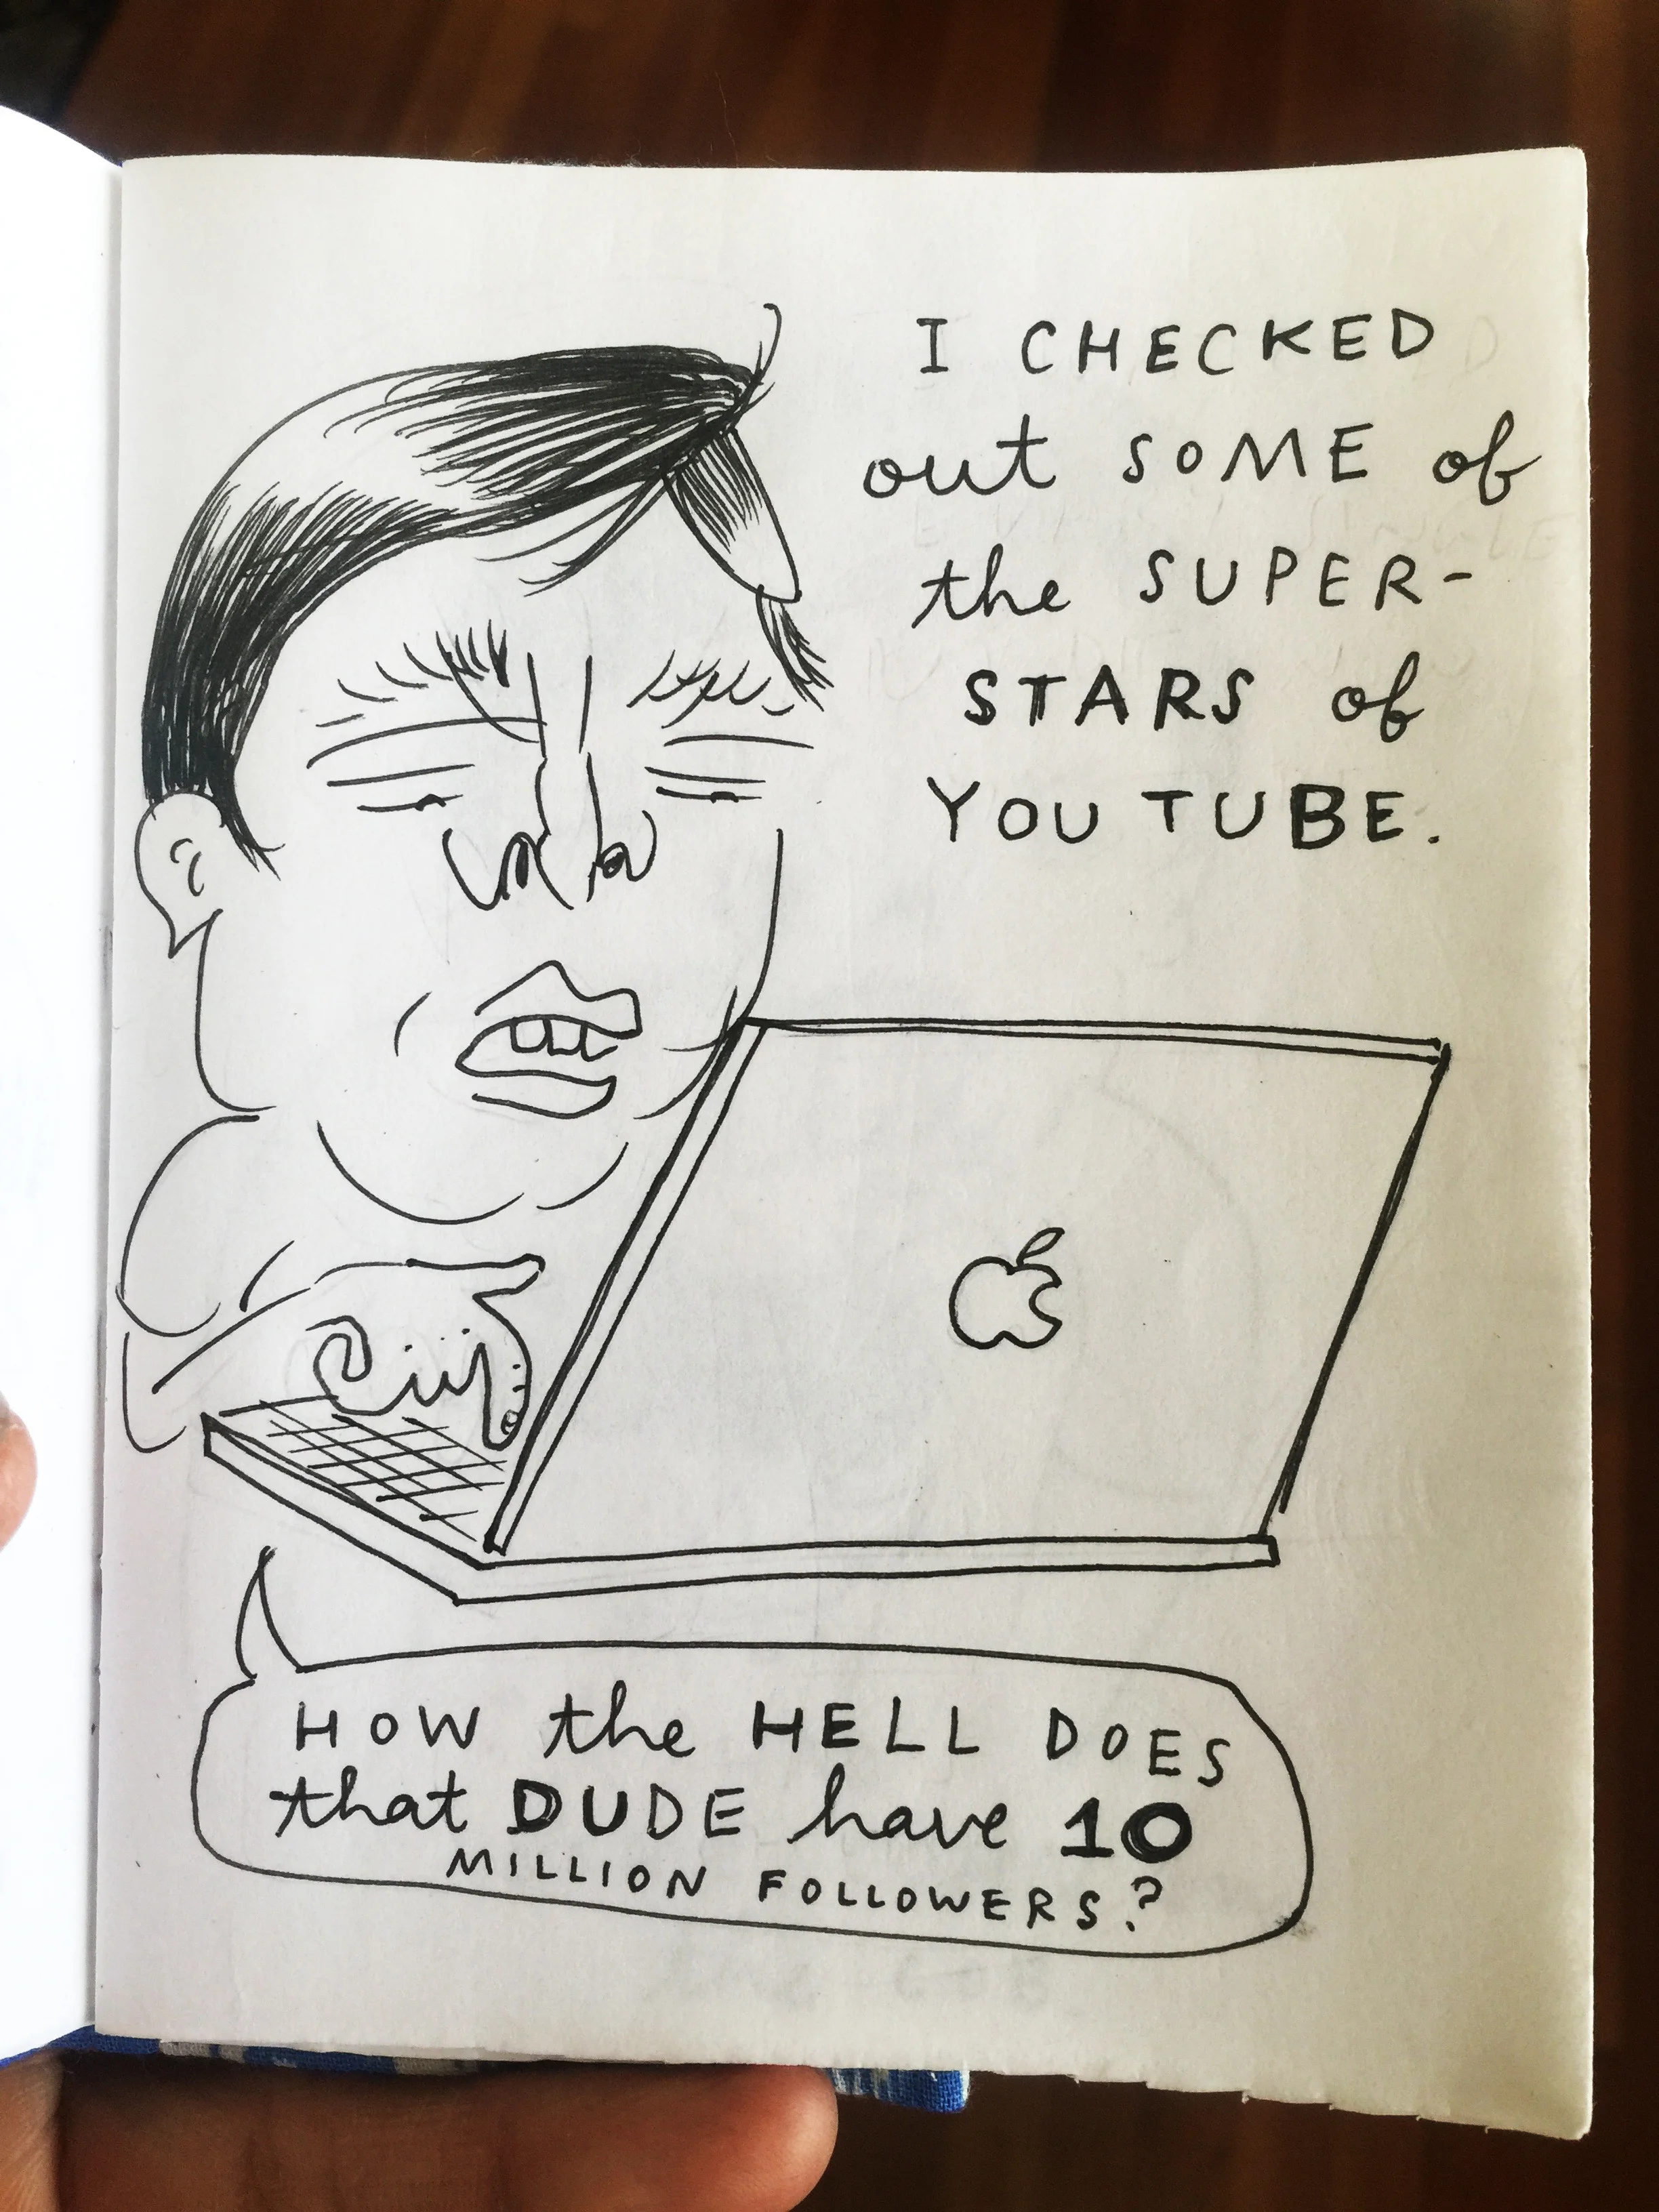 I CHECKED
out SOME of
the SUPER-
STARS of
YOU TUBE.
HOW the HELL DOES
that DUDE have 10
MILLION FOLLOWERS?